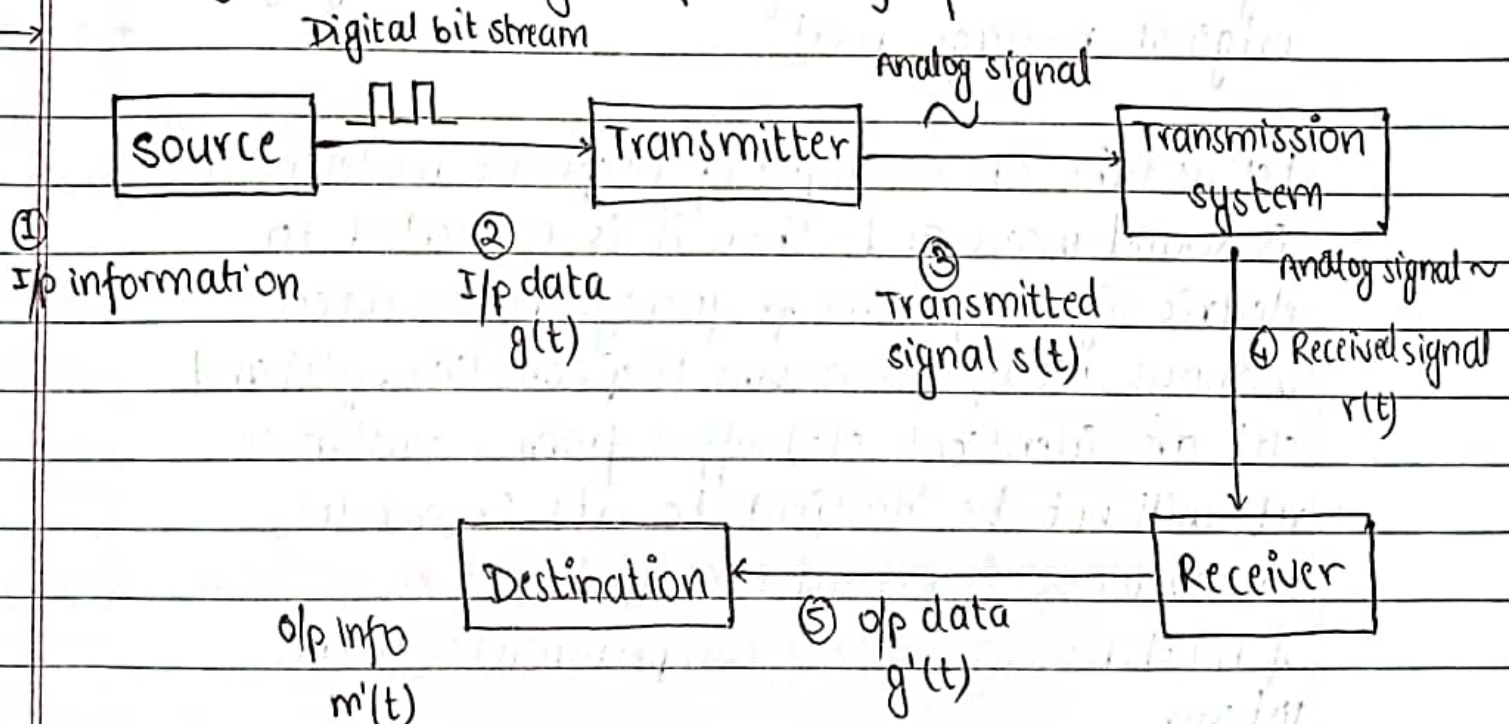 Digital bit stream
Analog signal
source
Transmitter
Transmission
system
①
I/p information
②
I/p data
g(t)
③
Transmitted
signal s(t)
Analog signal ~
④ Received signal
r(t)
Destination
Receiver
⑤ o/p data
g'(t)
o/p info
m'(t)